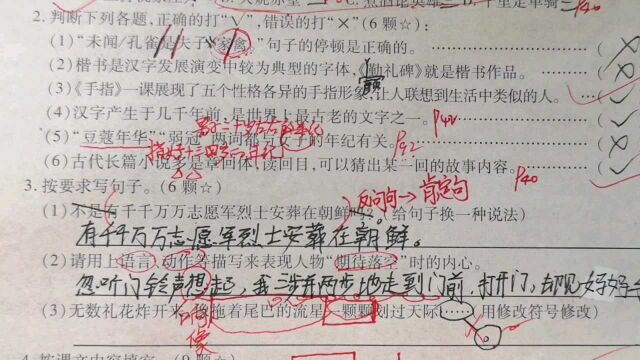 2. 判断下列各题,正确的打“√”,错误的打“×”(6颗☆):
(1) “未闻/孔雀是夫子/家禽。”句子的停顿是正确的。
(2) 楷书是汉字发展演变中较为典型的字体,《勤礼碑》就是楷书作品。
(3)《手指》一课展现了五个性格各异的手指形象,让人联想到生活中类似的人。
(4) 汉字产生于几千年前,是世界上最古老的文字之一。 P42
(5) “豆蔻年华”“弱冠”两词都与女子的年纪有关。 P92
(6) 古代长篇小说多是章回体,读回目,可以猜出某一回的故事内容。 P40
3. 按要求写句子。(6颗☆) 反问句→肯定句
(1) 不是有千千万万志愿军烈士安葬在朝鲜吗?(给句子换一种说法)
有千千万万志愿军烈士安葬在朝鲜。
(2) 请用上语言、动作等描写来表现人物“期待落空”时的内心。
忽听门铃声想起,我三步并两步地走到门前,打开门,却见妈妈
(3) 无数礼花炸开来,像拖着尾巴的流星一颗颗划过天际……(用修改符号修改)